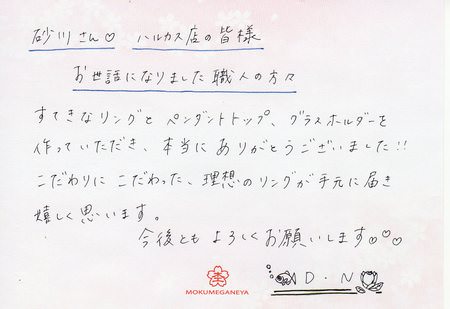 砂川さん♡ ハルカス店の皆様
お世話になりました職人の方々
すてきなリングと ペンダントトップ、グラスホルダーを
作っていただき、本当に ありがとうございました!!
こだわりに こだわった、理想のリングが手元に届き
嬉しく思います。
今後とも よろしくお願いします♡♡♡
D・N
MOKUMEGANEYA